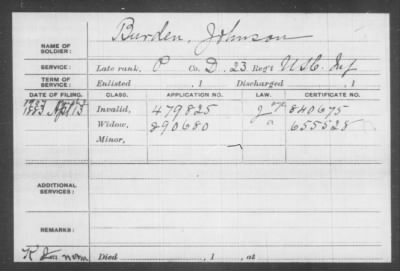 Burden, Johnson
NAME OF SOLDIER:
SERVICE: Late rank, P Co. D. 23 Reg't U.S.C. Inf
TERM OF SERVICE: Enlisted , 1 Discharged , 1
DATE OF FILING. CLASS. APPLICATION NO. LAW. CERTIFICATE NO.
1883 Apl 13 Invalid, 479825 840675
Widow, 890680 655528
Minor,
ADDITIONAL SERVICES:
REMARKS:
Died , 1 , at